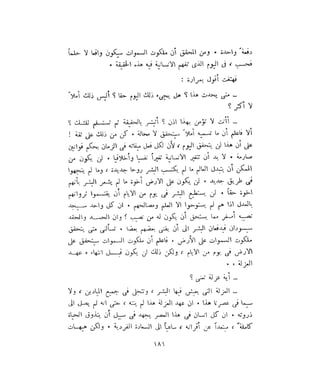 دفعة واحدة • ومن المحقق أن ملكوت السموات سيكون واقعا لا حلماً
فحسب ، فى اليوم الذى تفهم الانسانية فيه هذه الحقيقة •
فهتفت أقول بمرارة :
ــ متى يحدث هذا ؟ هل يجىء ذلك اليوم حقا ؟ أليس ذلك أملاً
لا أكثر ؟
ــ أأنت لا تؤمن بهذا اذن ؟ أتبشر بالحقيقة ثم تستسلم لقلتك ؟
ألا فاعلم أن ما تسميه أملاً سيتحقق لا محالة • كن من ذلك على ثقة !
على أن هذا لن يتحقق اليوم ، لأن لكل فعل ميقاته فى الزمان بحكم قوانين
صارمة • لا بد أن تتغير الانسانية تغيراً نفسيا وأخلاقيا • لن يكون من
الممكن أن يتبدل العالم ما لم يكتسب البشر روحا جديدة ، وما لم يتجهوا
فى طريق جديد • لن يكون على الارض أخوة ما لم يشعر البشر بأنهم
اخوة حقاً • لن يستطيع البشر فى يوم من الايام أن يقتسموا ثرواتهم
بالعدل اذا هم لم يستوحوا الا العلم ومصالحهم • ان كل واحد سيجد
نصيبه أصغر مما يستحق أن يكون له من نصيب ؛ وان الحسد والحقد
سيسودان فيدفعان البشر الى أن يفنى بعضهم بعضا • تسألنى متى يتحقق
ملكوت السموات على الأرض • فاعلم أن ملكوت السموات سيتحقق على
الارض فى يوم من الايام ، ولكن ذلك لن يكون قبل انتهاء عهد
العزلة • •
ــ أية عزلة تعنى ؟
ــ العزلة التى يعيش فيها البشر ، وتتجلى فى جميع الميادين ، ولا
سيما فى عصرنا هذا • ان عهد العزلة هذا لم ينته ، حتى انه لم يصل الى
ذروته • ان كل انسان فى هذا العصر يجهد فى سبيل أن يتذوق الحياة
كاملةً ، مبتعداً عن أقرانه ، ساعياً الى السعادة الفردية • ولكن هيهات
١٨٦